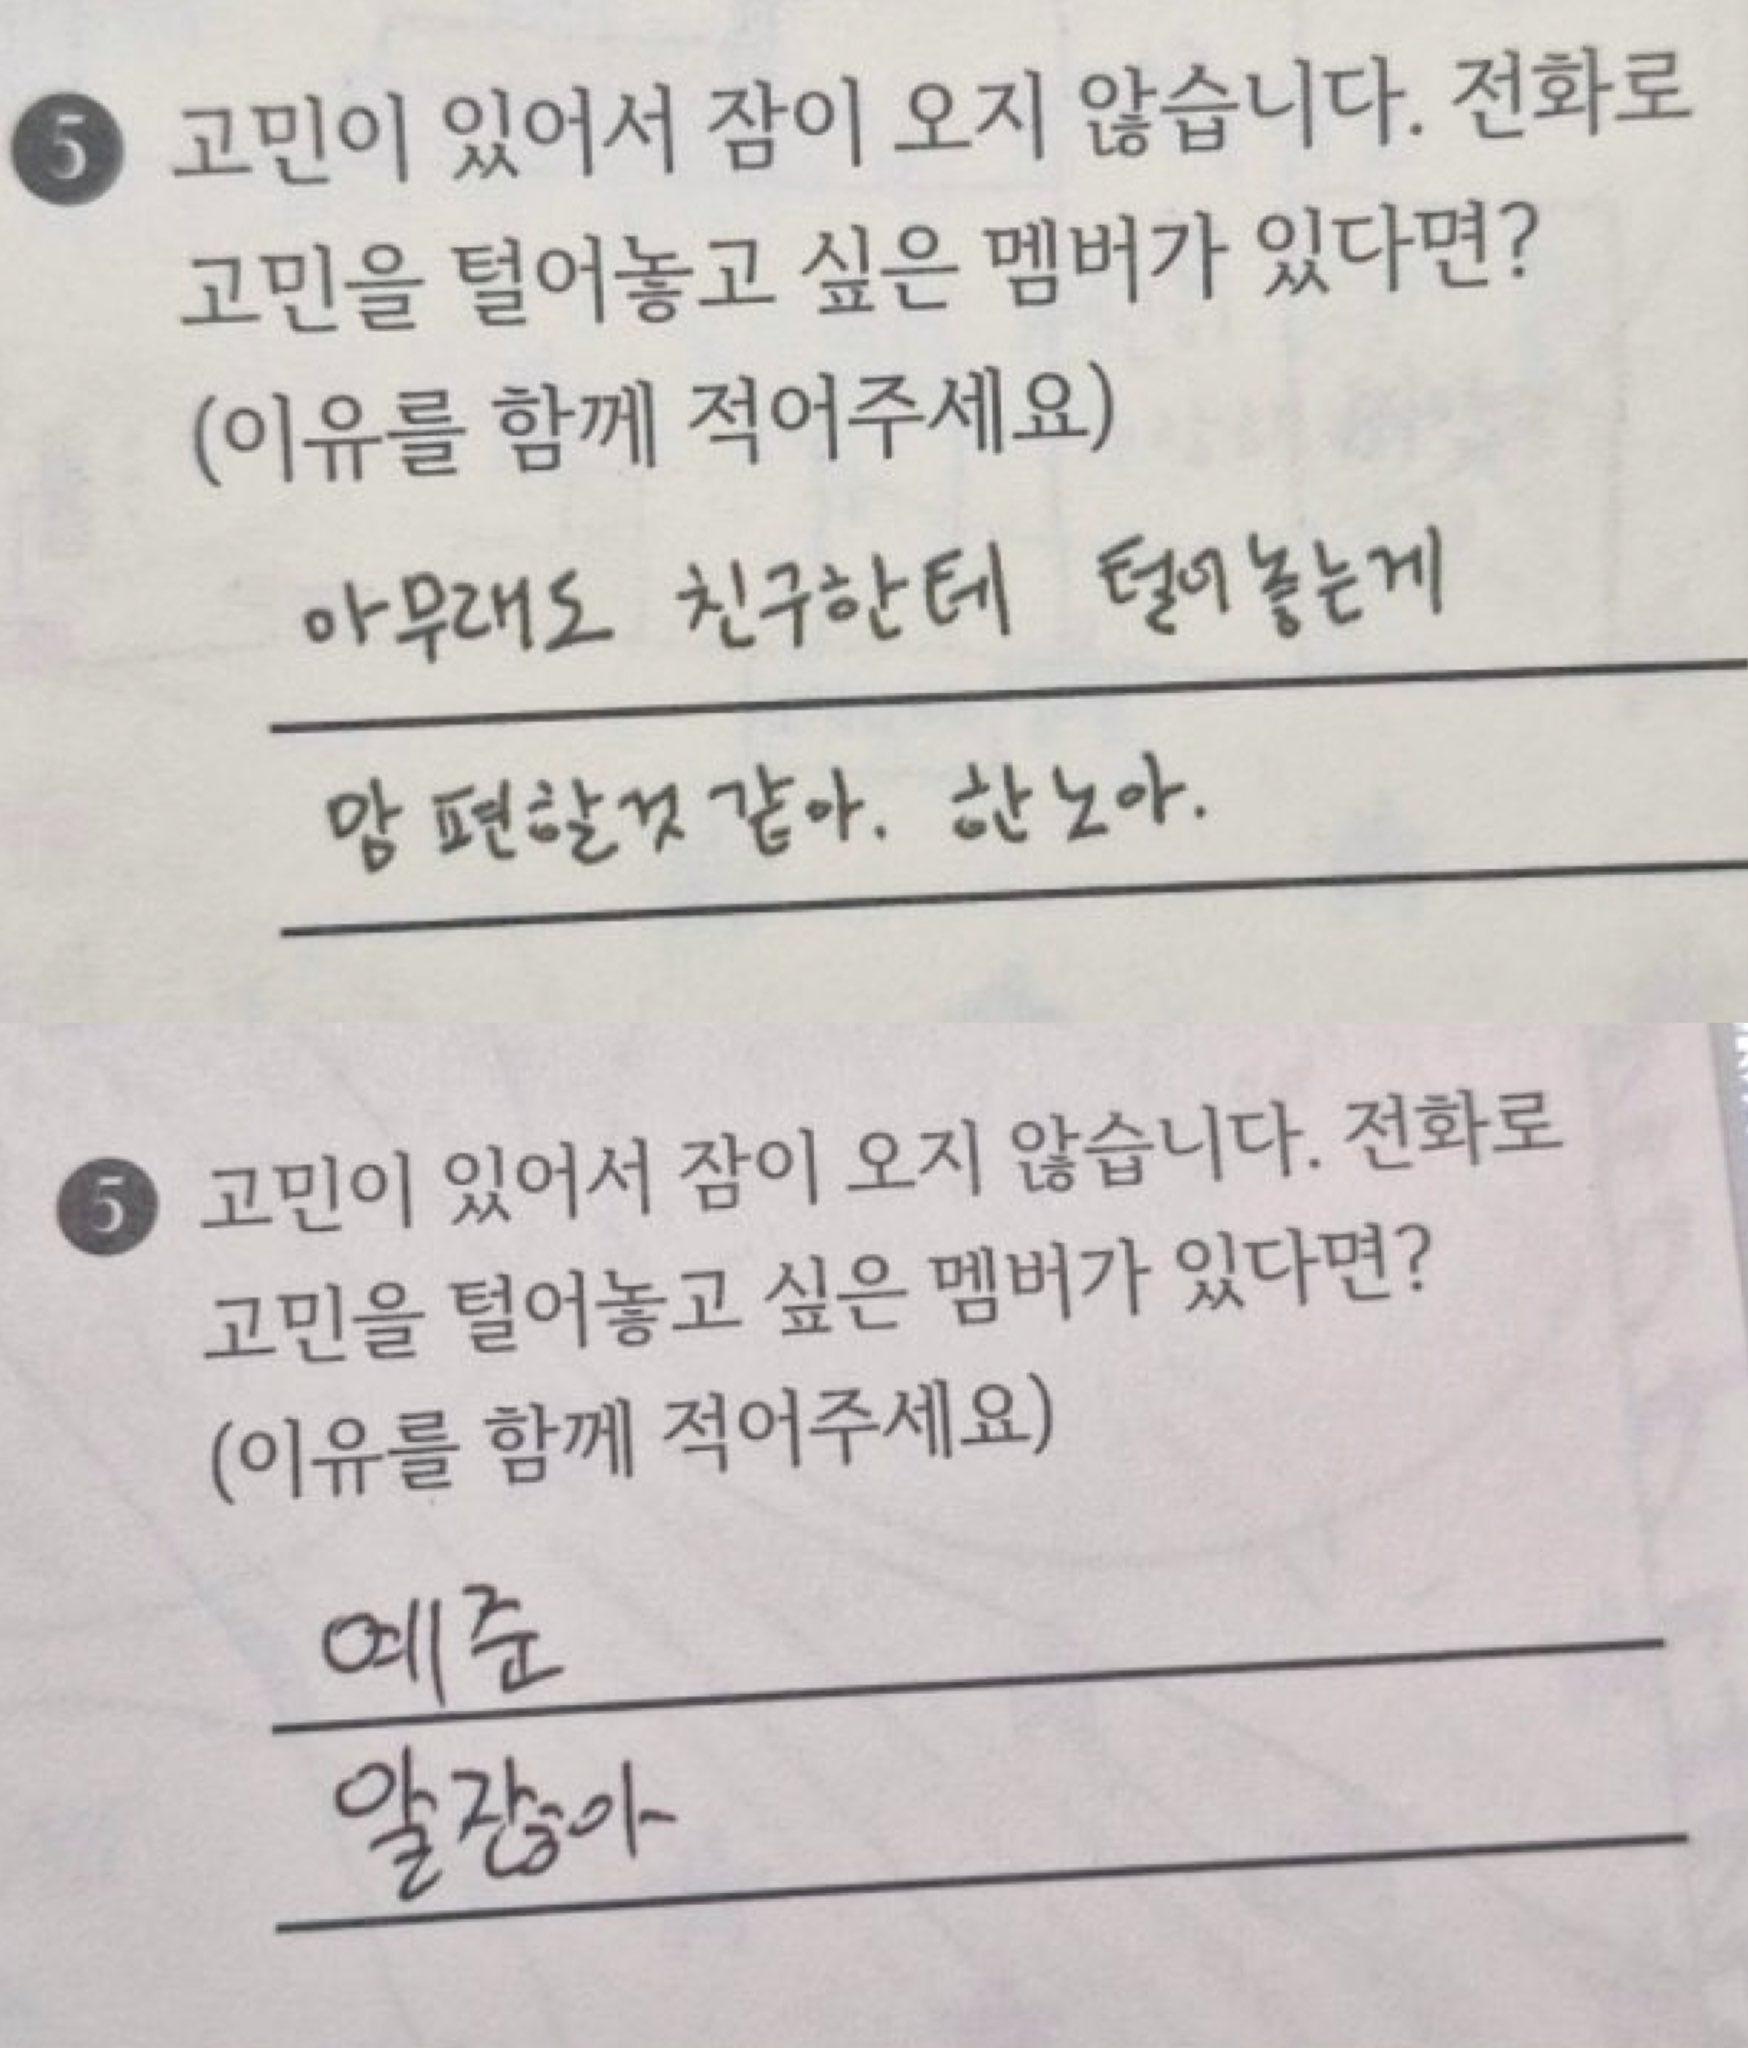 5 고민이 있어서 잠이 오지 않습니다. 전화로
고민을 털어놓고 싶은 멤버가 있다면?
(이유를 함께 적어주세요)
아무래도 친구한테 털어놓는게
맘 편할것 같아. 한노아.
5 고민이 있어서 잠이 오지 않습니다. 전화로
고민을 털어놓고 싶은 멤버가 있다면?
(이유를 함께 적어주세요)
예준
알잖아